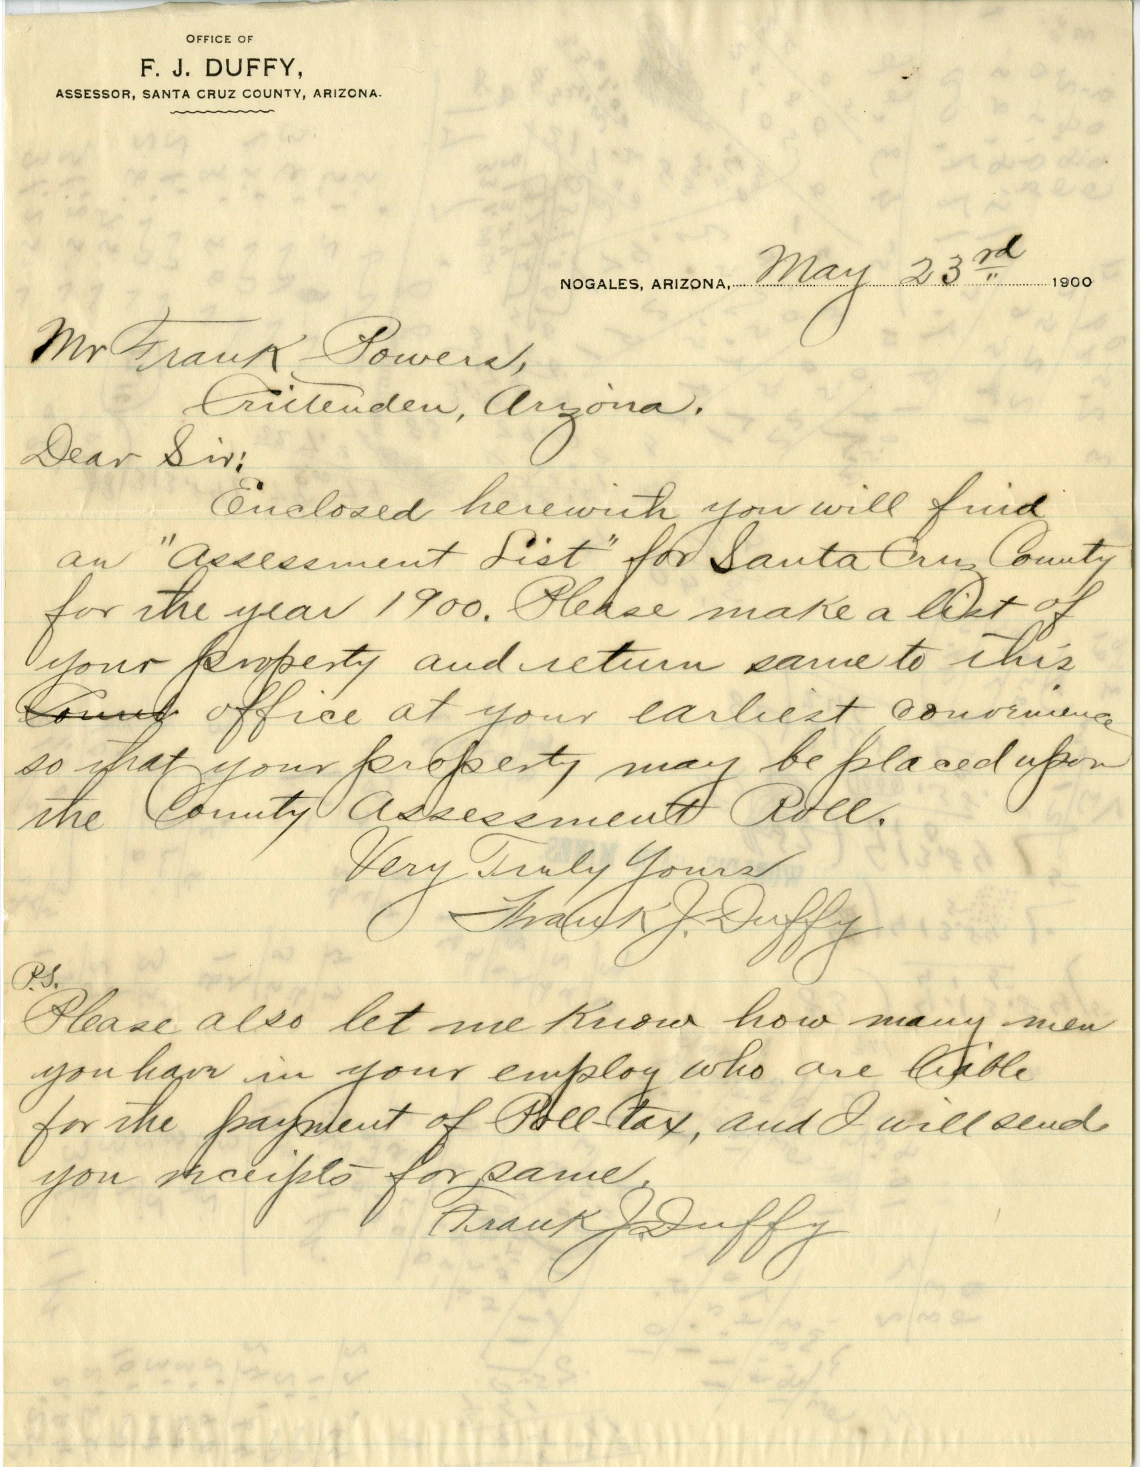 OFFICE OF
F. J. DUFFY,
ASSESSOR, SANTA CRUZ COUNTY, ARIZONA.
NOGALES, ARIZONA, May 23rd 1900
Mr Frank Powers,
Crittenden, Arizona.
Dear Sir:
Enclosed herewith you will find
an "Assessment List" for Santa Cruz County
for the year 1900. Please make a list of
your property and return same to this
office at your earliest convenience
so that your property may be placed upon
the County Assessment Roll.
Very Truly Yours
Frank J. Duffy
P.S.
Please also let me know how many men
you have in your employ who are liable
for the payment of Poll-tax, and I will send
you receipts for same.
Frank J. Duffy